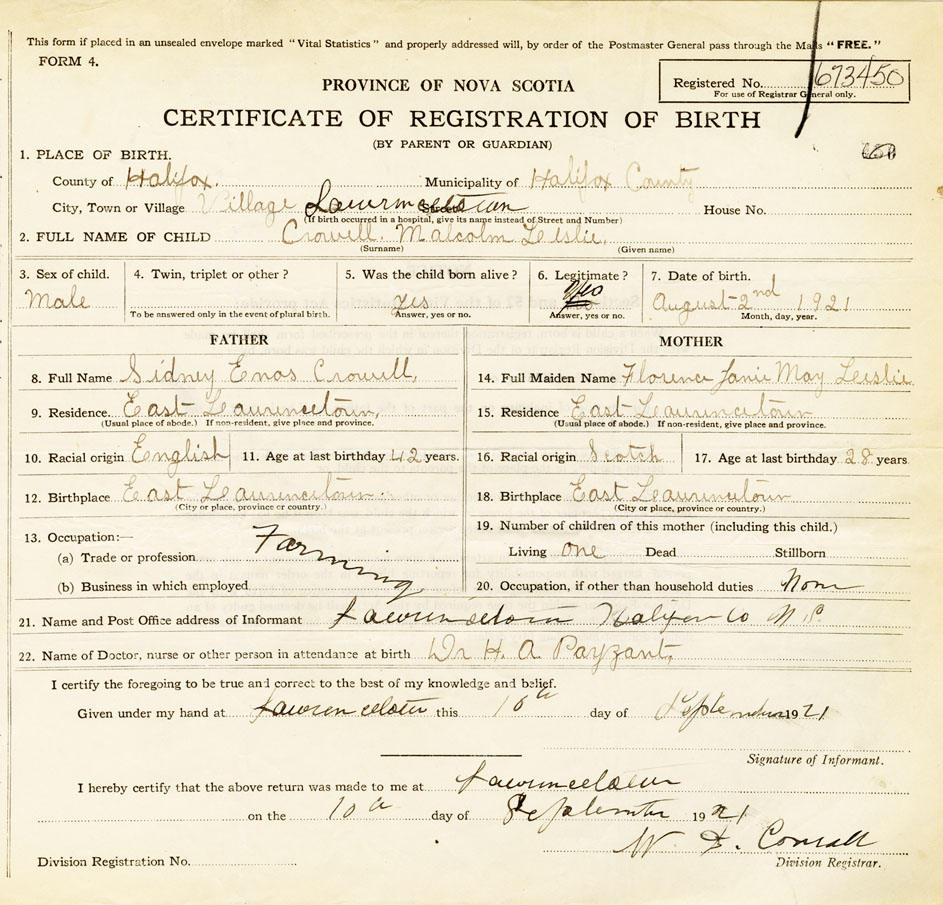 This form if placed in an unsealed envelope marked "Vital Statistics" and properly addressed will, by order of the Postmaster General pass through the Mails "FREE."
FORM 4.
Registered No. 673450
For use of Registrar General only.
PROVINCE OF NOVA SCOTIA
CERTIFICATE OF REGISTRATION OF BIRTH
(BY PARENT OR GUARDIAN)
1. PLACE OF BIRTH.
County of Halifax. Municipality of Halifax County
City, Town or Village Village Lawrencetown Street House No.
(If birth occurred in a hospital, give its name instead of Street and Number)
2. FULL NAME OF CHILD Crowell. Malcolm Leslie.
(Surname) (Given name)
3. Sex of child. 4. Twin, triplet or other? 5. Was the child born alive? 6. Legitimate? 7. Date of birth.
Male Yes Yes August 2nd 1921
To be answered only in the event of plural birth. Answer, yes or no. Answer, yes or no. Month, day, year.
FATHER MOTHER
8. Full Name Sidney Enos Crowell. 14. Full Maiden Name Florence Janie May Leislie
9. Residence. East Leaurencetown, 15. Residence East Leaurencetown
(Usual place of abode.) If non-resident, give place and province. (Usual place of abode.) If non-resident, give place and province.
10. Racial origin English 11. Age at last birthday 42 years. 16. Racial origin Scotch 17. Age at last birthday 28 years
12. Birthplace East Leaurencetown. 18. Birthplace East Leaurencetown
(City or place, province or country.) (City or place, province or country.)
13. Occupation:— 19. Number of children of this mother (including this child.)
(a) Trade or profession Farming Living One Dead Stillborn
(b) Business in which employed 20. Occupation, if other than household duties None
21. Name and Post Office address of Informant Lawrencetown Halifax Co N.S.
22. Name of Doctor, nurse or other person in attendance at birth Dr H. A Payzant,
I certify the foregoing to be true and correct to the best of my knowledge and belief.
Given under my hand at Lawrencetown this 10th day of September 1921
Signature of Informant.
I hereby certify that the above return was made to me at Lawrencetown
on the 10th day of September 1921
W. Conrall
Division Registration No. Division Registrar.